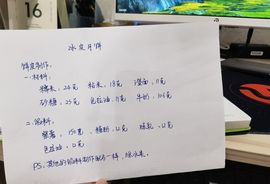 16
冰皮月饼
饼皮制作。
一.材料:
糯米.26克 粘米.18克 澄面.11克
砂糖.25克 色拉油.11克 牛奶.106克
二.馅料:
紫薯.150克 糖粉.12克 炼乳.12克
色拉油.12克
PS.其他的馅料制作